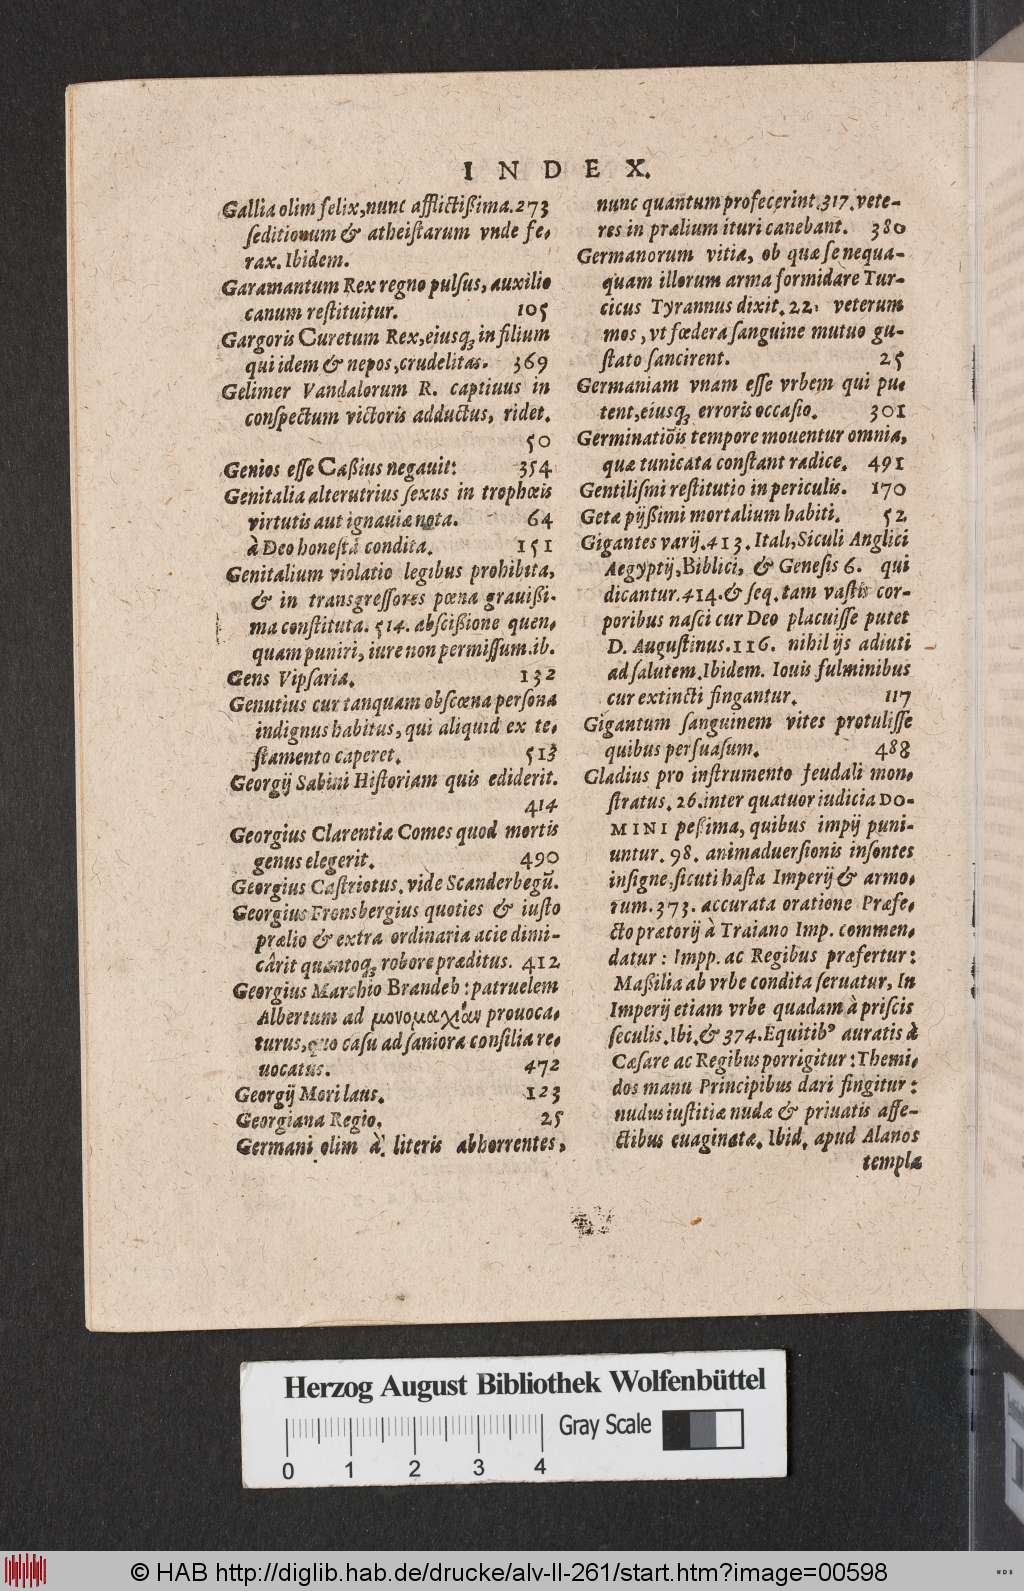 INDEX.
Gallia olim felix, nunc afflictißima. 273
ſeditionum & atheiſtarum vnde fe-
rax. Ibidem.
Garamantum Rex regno pulſus, auxilio
canum reſtituitur. 105
Gargoris Curetum Rex, eiusq́ꝫ in filium
qui idem & nepos, crudelitas. 369
Gelimer Vandalorum R. captiuus in
conſpectum victoris adductus, ridet.
50
Genios eſſe Caßius negauit: 354
Genitalia alterutrius ſexus in trophœis
virtutis aut ignauiæ nota. 64
à Deo honeſtá condita. 151
Genitalium violatio legibus prohibita,
& in transgreſſores pœna grauißi-
ma conſtituta. 514. abſcißione quen-
quam puniri, iure non permiſſum. ib.
Gens Vipſaria. 132
Genutius cur tanquam obſcœna perſona
indignus habitus, qui aliquid ex te-
ſtamento caperet. 513
Georgij Sabini Hiſtoriam quis ediderit.
414
Georgius Clarentiæ Comes quod mortis
genus elegerit. 490
Georgius Caſtriotus. vide Scanderbegū.
Georgius Fronsbergius quoties & iuſto
prælio & extra ordinaria acie dimi-
cârit quantoq́ꝫ robore præditus. 412
Georgius Marchio Brandeb: patruelem
Albertum ad μονομαχίαν prouoca-
turus, quo caſu ad ſaniora conſilia re-
uocatus. 472
Georgij Mori laus. 123
Georgiana Regio. 25
Germani olim à literis abhorrentes,
nunc quantum profecerint. 317. vete-
res in prælium ituri canebant. 380
Germanorum vitia, ob quæ ſe nequa-
quam illorum arma formidare Tur-
cicus Tyrannus dixit. 22. veterum
mos, vt fœdera ſanguine mutuo gu-
ſtato ſancirent. 25
Germaniam vnam eſſe vrbem qui pu-
tent, eiusq́ꝫ erroris occaſio. 301
Germinatiōis tempore mouentur omnia,
quæ tunicata conſtant radice. 491
Gentiliſmi reſtitutio in periculis. 170
Getæ pijßimi mortalium habiti. 52
Gigantes varij. 413. Itali, Siculi Anglici
Aegyptij, Biblici, & Geneſis 6. qui
dicantur. 414. & ſeq. tam vaſtis cor-
poribus naſci cur Deo placuiſſe putet
D. Auguſtinus. 116. nihil ijs adiuti
ad ſalutem. Ibidem. Iouis fulminibus
cur extincti fingantur. 117
Gigantum ſanguinem vites protuliſſe
quibus perſuaſum. 488
Gladius pro inſtrumento feudali mon-
ſtratus. 26. inter quatuor iudicia DO-
MINI peßima, quibus impij puni-
untur. 98. animaduerſionis inſontes
inſigne, ſicuti haſta Imperij & armo-
rum. 373. accurata oratione Præfe-
cto prætorij à Traiano Imp. commen-
datur: Impp. ac Regibus præfertur:
Maßilia ab vrbe condita ſeruatur, In
Imperij etiam vrbe quadam à priſcis
ſeculis. Ibi. & 374. Equitibꝰ auratis à
Cæſare ac Regibus porrigitur: Themi-
dos manu Principibus dari fingitur:
nudus iuſtitiæ nudæ & priuatis affe-
ctibus euaginatæ. Ibid. apud Alanos
templa
Herzog August Bibliothek Wolfenbüttel
Gray Scale
0 1 2 3 4
© HAB http://diglib.hab.de/drucke/alv-ll-261/start.htm?image=00598